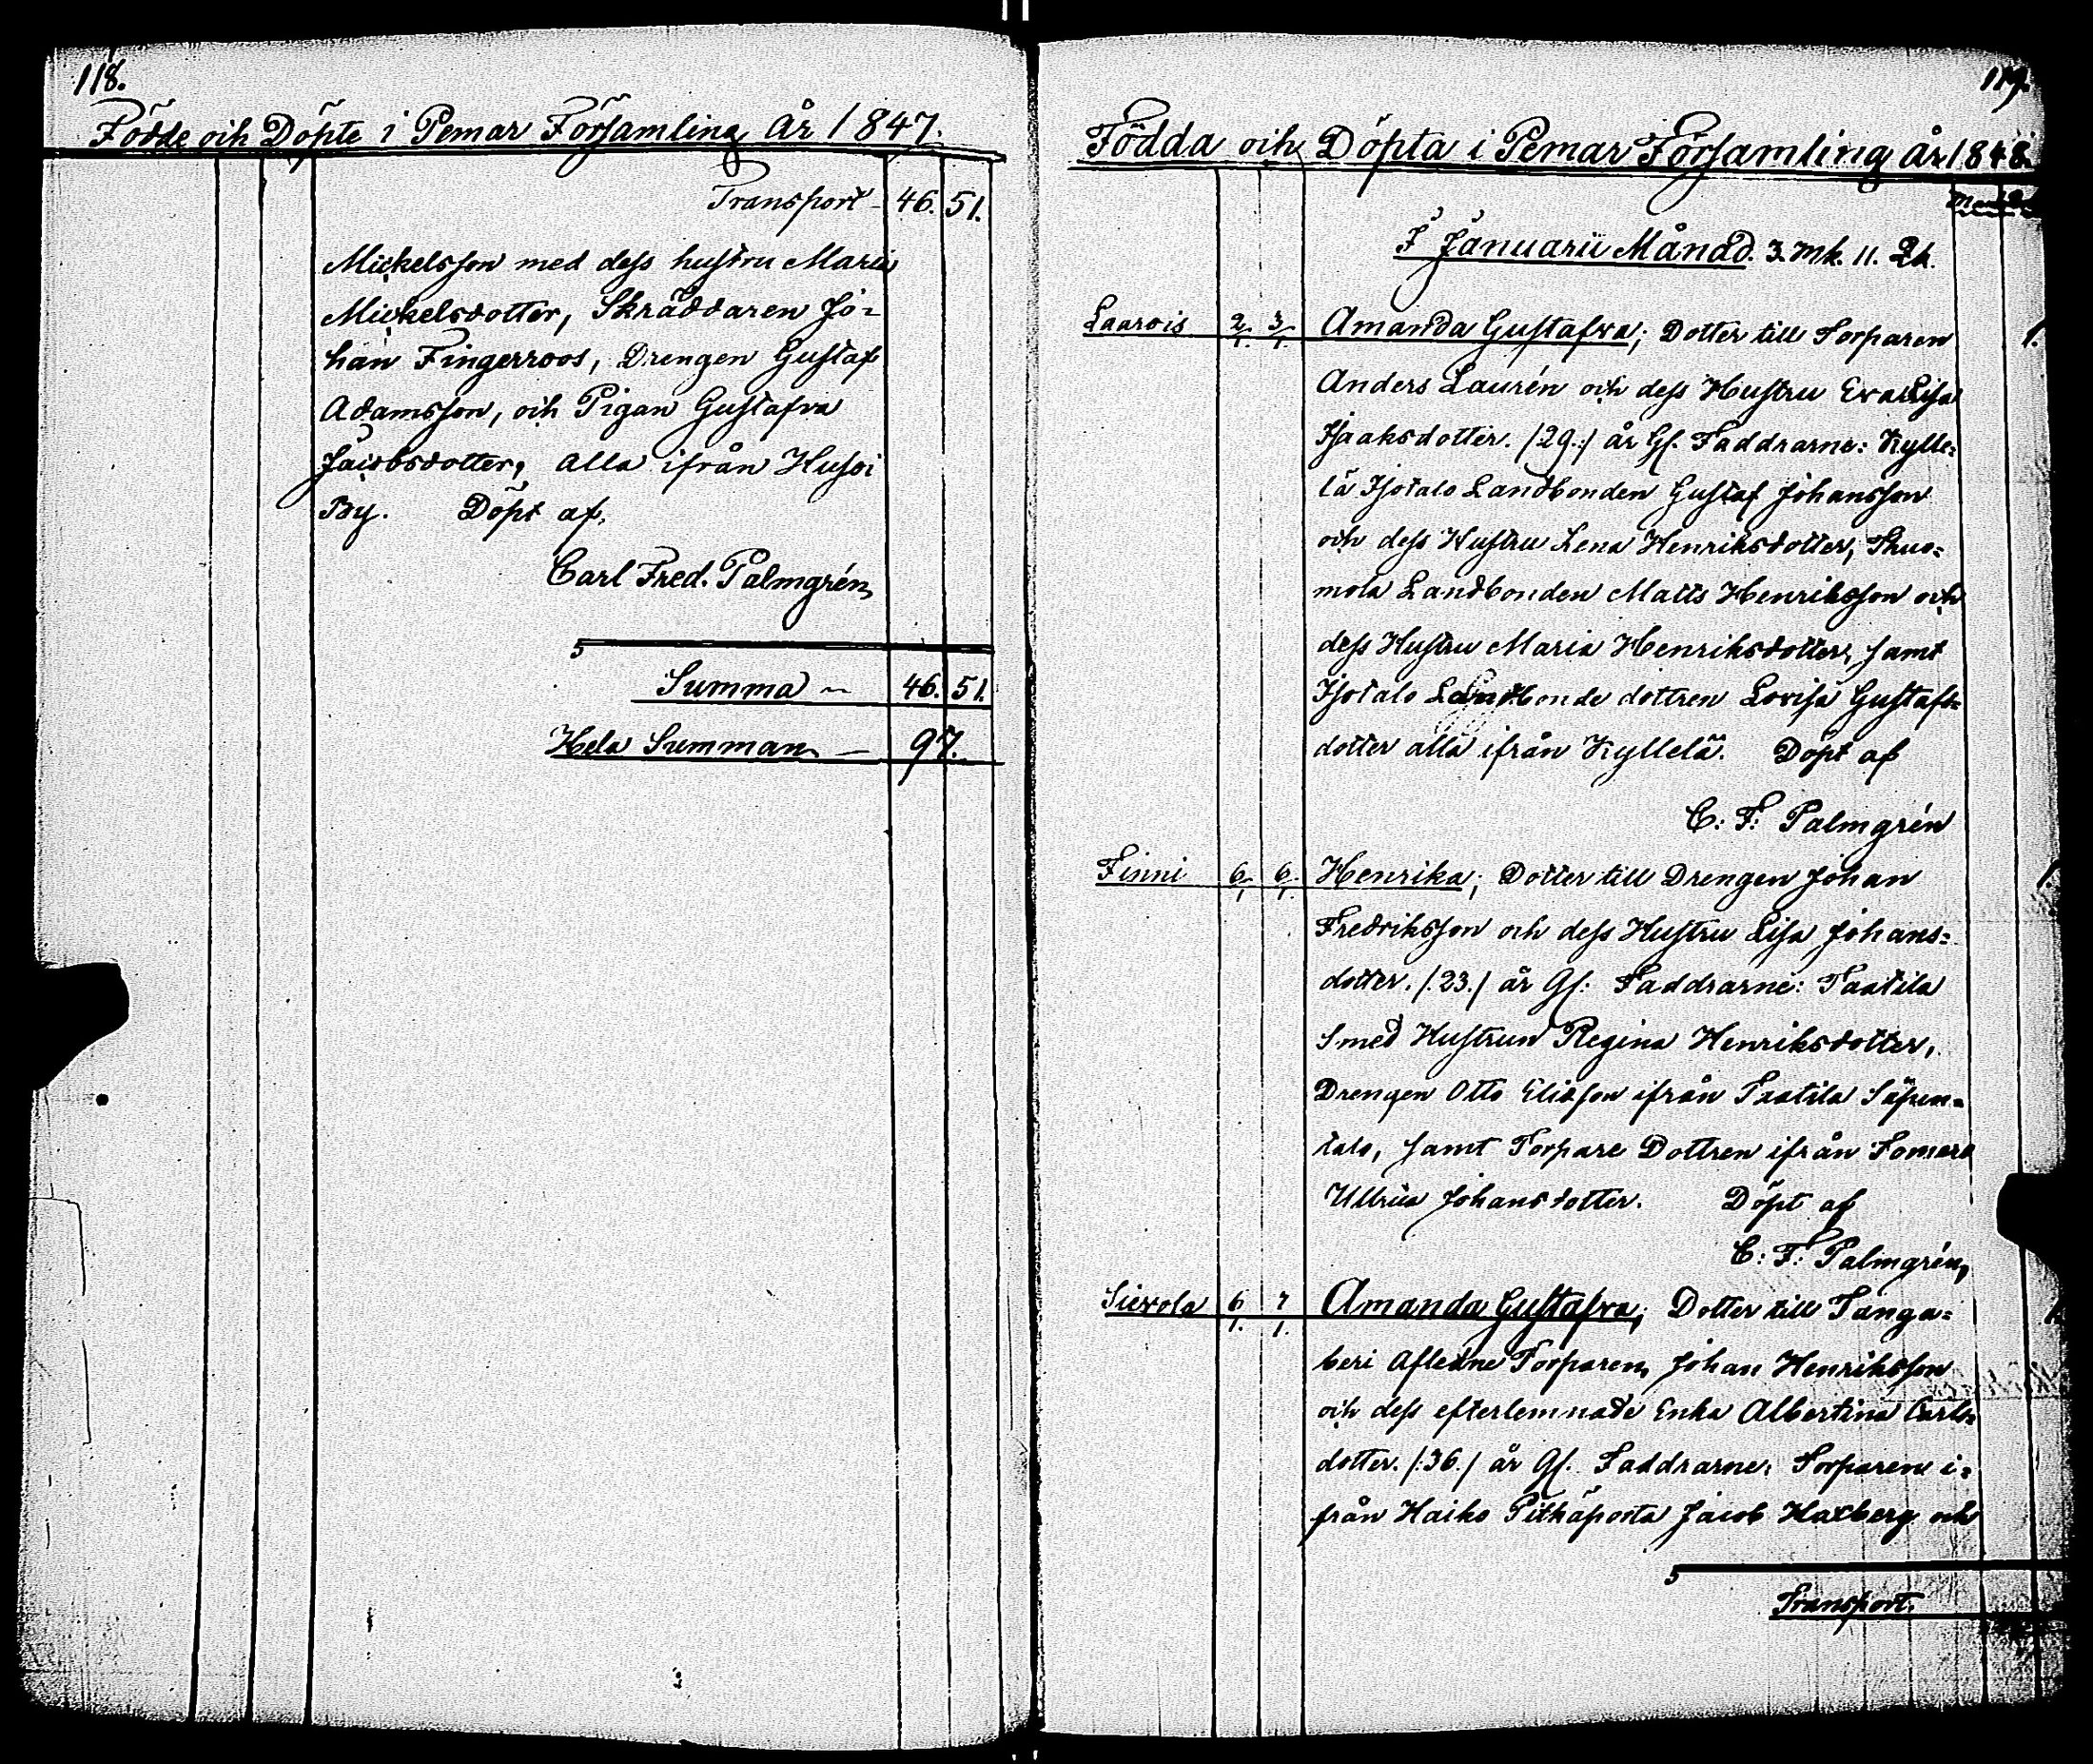 118.
Födde och Döpte i Pemar Församling År 1847.
Transport 46. 51.
Mickelsson med dess hustru Maria
Mickelsdotter, Skräddaren Jo-
han Fingerroos, Drengen Gustaf
Adamsson, och Pigan Gustafva
Jacobsdotter, alla ifrån Hussi
By. Döpt af,
Carl Fred. Palmgrén
Summa 46. 51.
Hela Summan — 97.
119.
Födda och Döpta i Pemar Församling år 1848.
I Januarii Månad. 3. Mk. 11. Qk.
Laurois 2/1. 3/1. Amanda Gustafva; Dotter till Torparen 1.
Anders Laurén och dess Hustru Eva Lisa
Isaaksdotter. /29./ år Gl. Faddrarne: Kylle-
lä Isotalo Landbonden Gustaf Johansson
och dess Hustru Lena Henriksdotter,
mola Landbonden Matts Henriksson och
dess Hustru Maria Henriksdotter, samt
Isotalo Landbonde dottren Lovisa Gustafs-
dotter alla ifrån Kyllelä. Döpt af
C: F: Palmgrén
Finni 6/1. 6/1. Henrika; Dotter till Drengen Johan 1.
Fredriksson och dess Hustru Lisa Johans-
dotter. /:23./ år Gl: Faddrarne: Taatila
Smed Hustrun Regina Henriksdotter,
Drengen Otto Eliasson ifrån Taatila Säpen-
talo, samt Torpare Dottren ifrån Somero
Ullrica Johansdotter. Döpt af
C: F: Palmgrén,
Sievola 6/1. 7/1. Amanda Gustafva; Dotter till Tanga- 1.
beri Afledne Torparen Johan Henriksson
och dess efterlemnade Enka Albertina Carls-
dotter. /:36./ år Gl. Faddrarne: Torparen i-
från Haiko Pitkäporta Jacob Haxberg och
Transport.